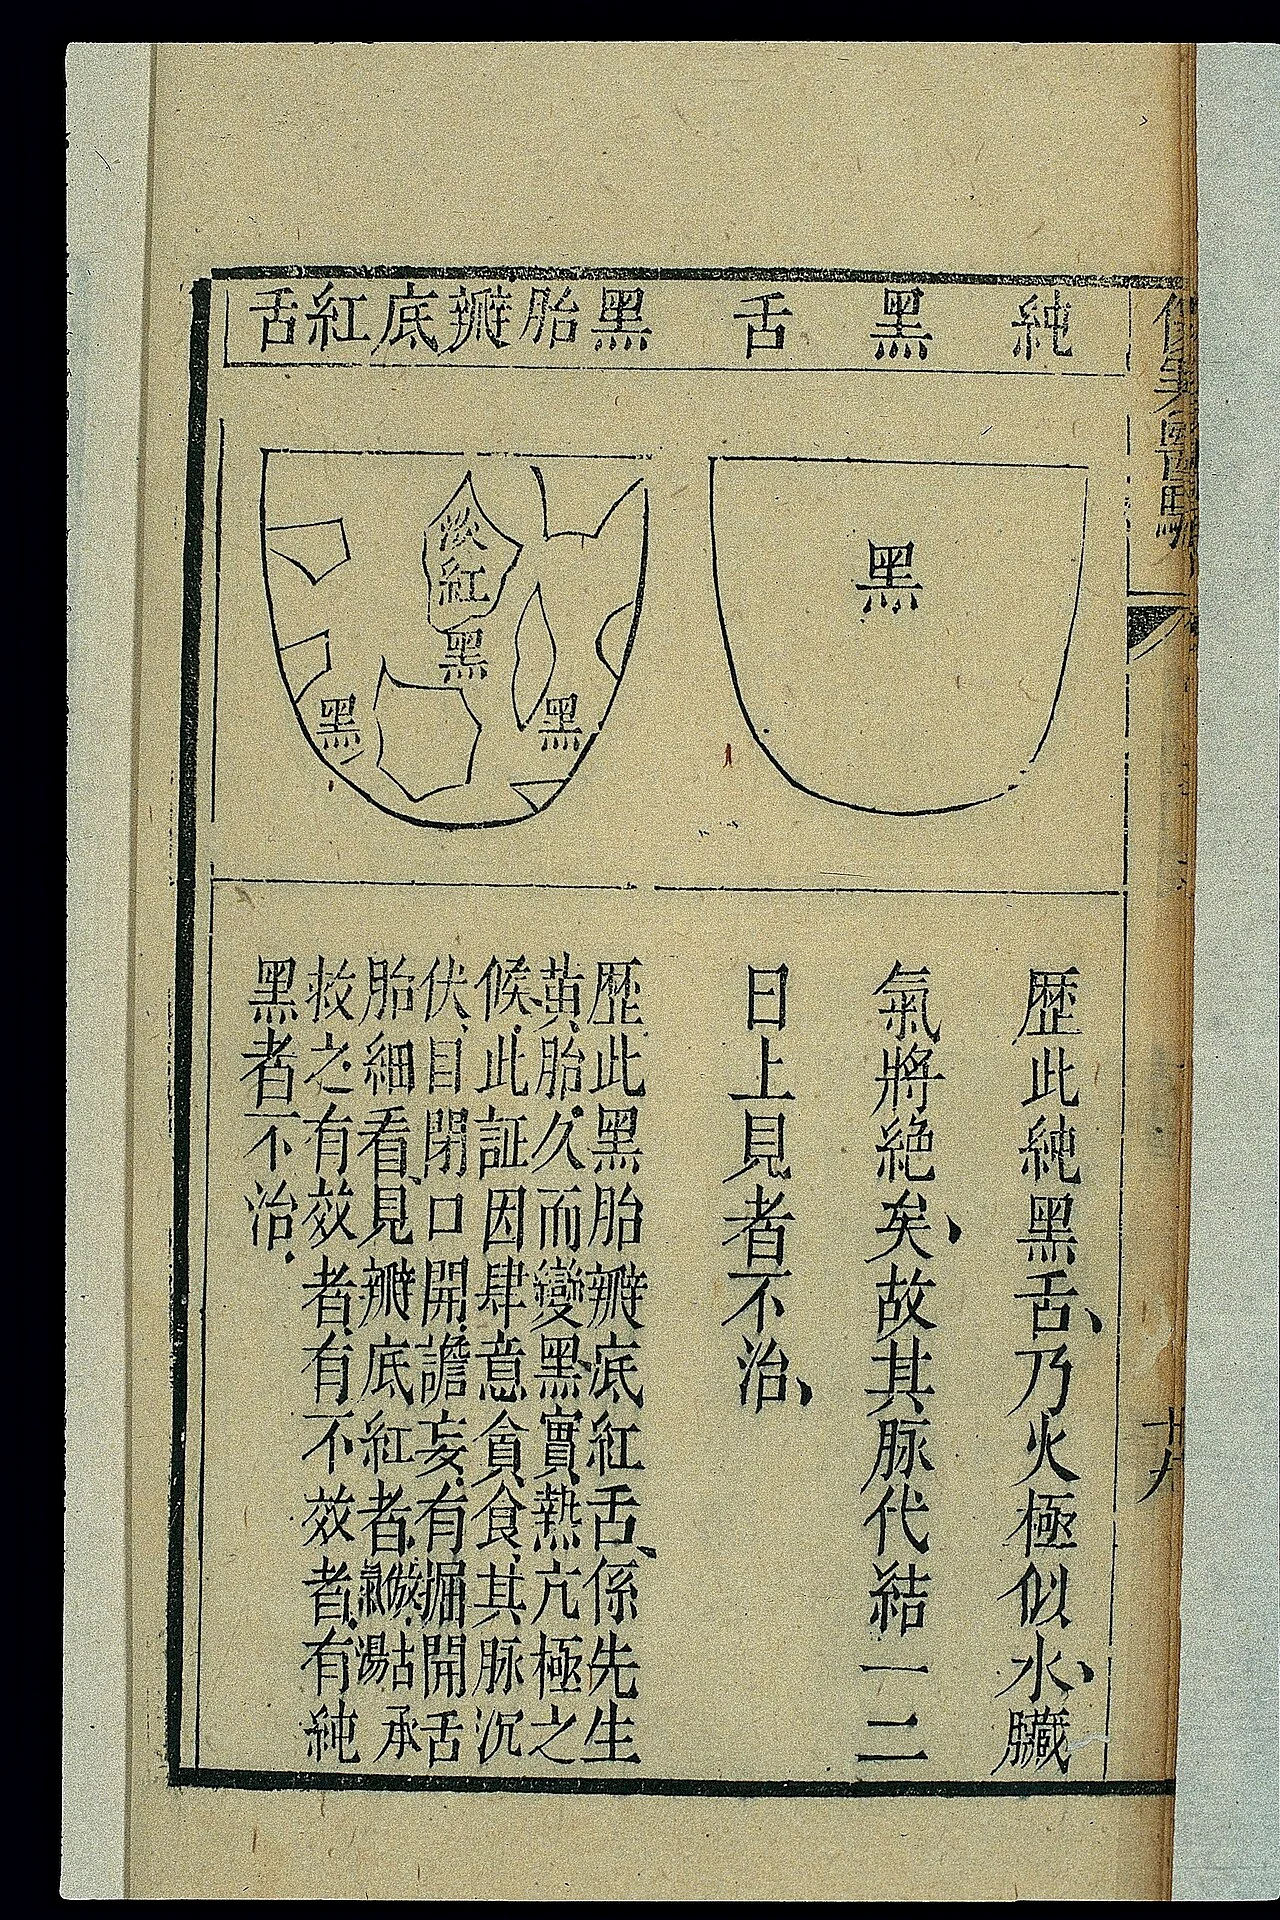 純黑舌
黑
歴此純黑舌、乃火極似水、臟
氣將絕矣、故其脉代結一二
日上見者不治、
黑胎瓣底紅舌
淡紅
黑
黑
黑
歴此黑胎瓣底紅舌、係先生
黄胎久而變黑實熱亢極之
候此証因肆意貪食其脉沉
伏、目閉口開譫妄有掘開舌
胎細看、見瓣底紅者
救之有效者有不效者有純
黑者不治.